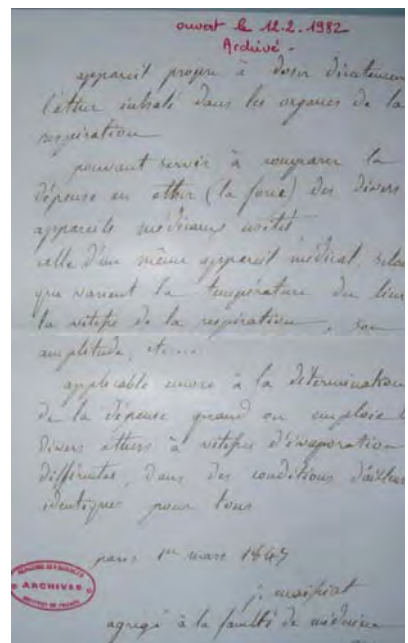 ouvert le 12.2.1982
Archivé.
appareil propre à doser directemen
l'éther inhalé dans les organes de la
respiration
pouvant servir à comparer la
dépense en éther (la force) des divers
appareils médicaux usités
celle d'un même appareil médical, selon
que varient la température du lieu
la vitesse de la respiration, son
amplitude, etc...
applicable encore à la détermination
de la dépense quand on emploie l
divers éthers à vitesse d'évaporation
différentes, dans des conditions d'ailleurs
identiques pour tous
paris 1er mars 1847
j. maissiat
agrégé à la faculté de médecine
ARCHIVES